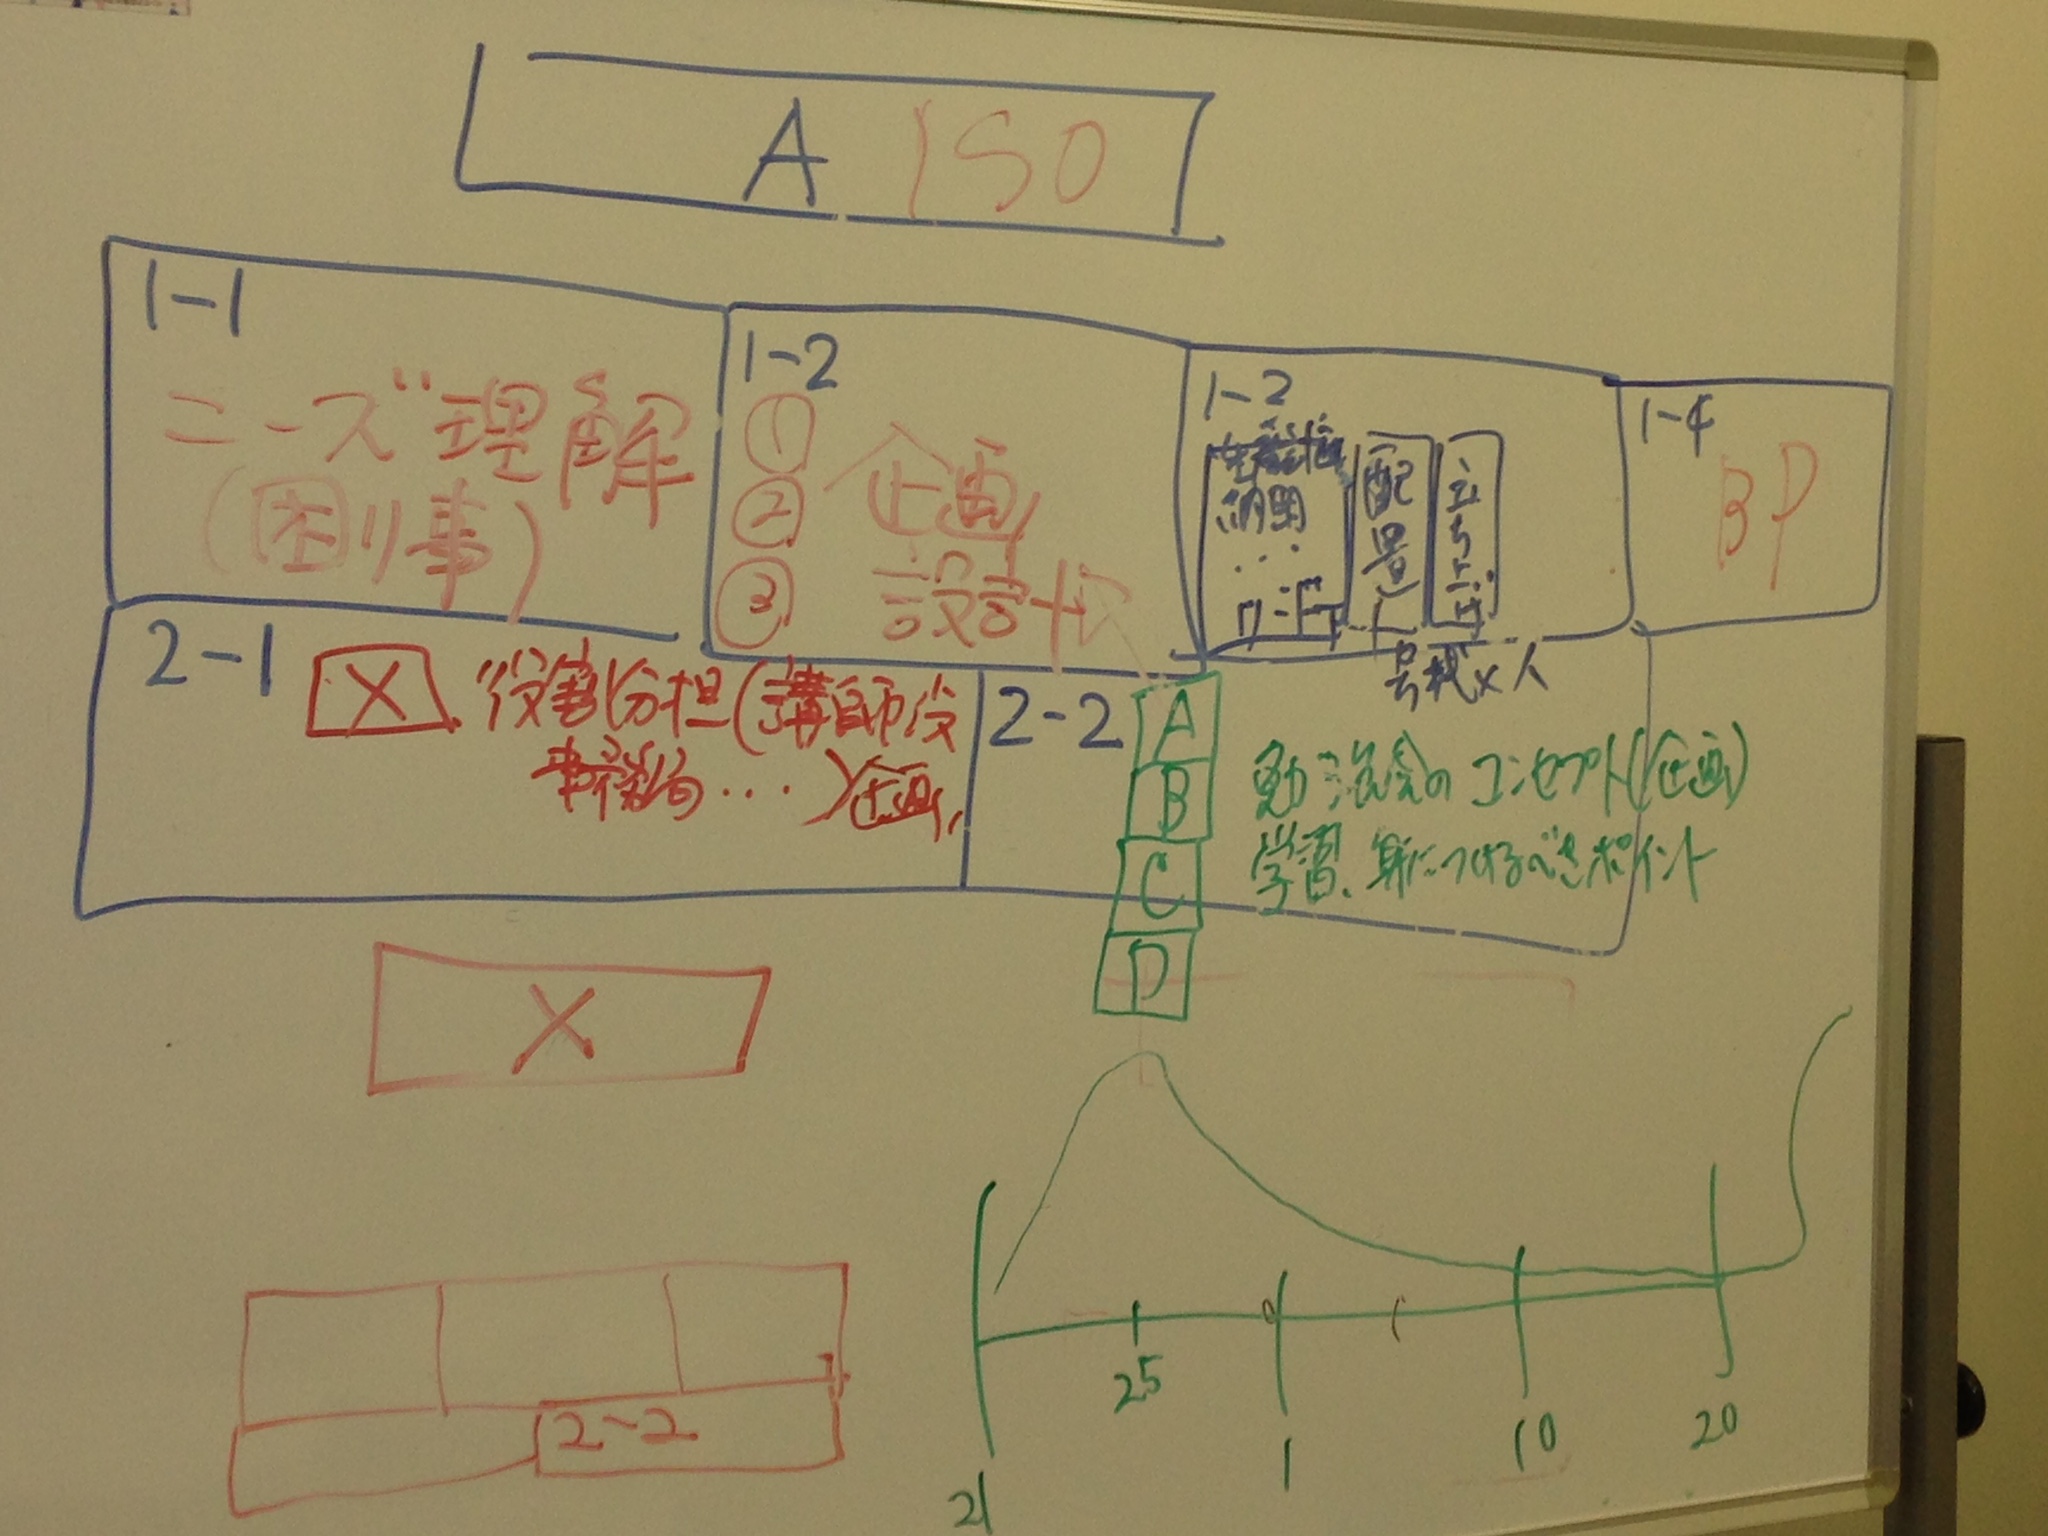 A ISO
1-1
ニーズ理解
(困り事)
1-2
①
②
③
企画
設計
1-2
納期
配置
立ち上げ
1-4
BP
2-1
X
役割分担(講師役
事務局…)企画
2-2
A
B
C
D
勉強会のコンセプト(企画)
学習、身につけるべきポイント
X
2-2
21
25
1
10
20